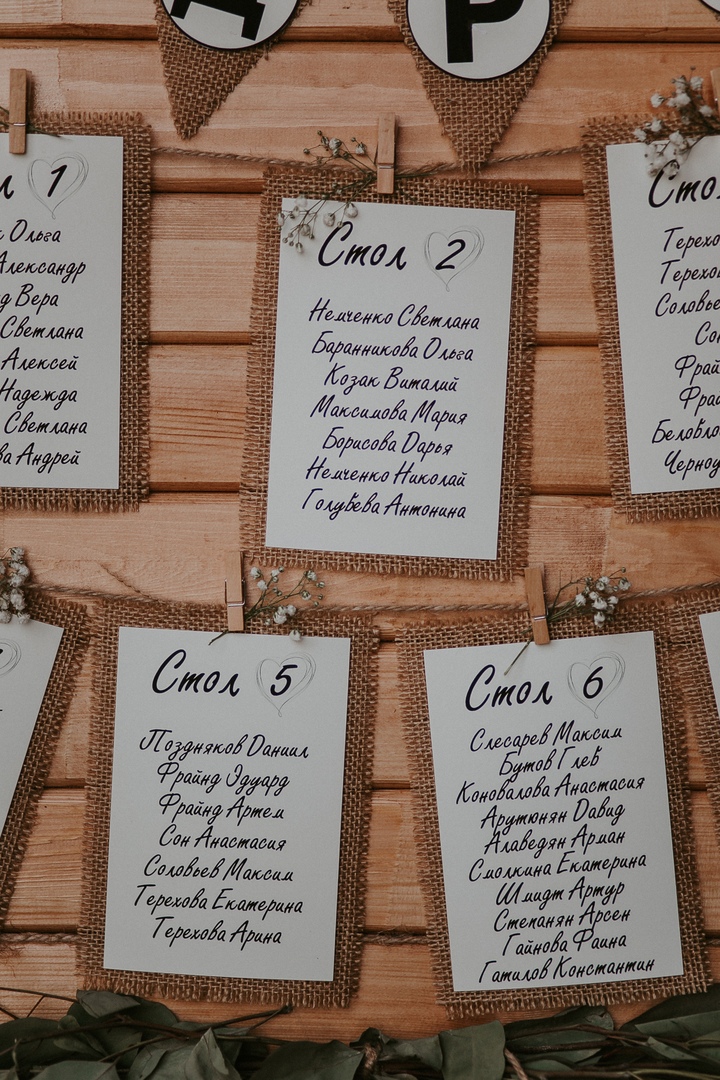 Д Р
1
Ольга
Александр
Вера
Светлана
Алексей
Надежда
Светлана
Андрей
Стол 2
Немченко Светлана
Баранникова Ольга
Козак Виталий
Максимова Мария
Борисова Дарья
Немченко Николай
Голубева Антонина
Стол 5
Поздняков Даниил
Фрайнд Эдуард
Фрайнд Артем
Сон Анастасия
Соловьев Максим
Терехова Екатерина
Терехова Арина
Стол 6
Слесарев Максим
Бутов Глеб
Коновалова Анастасия
Арутюнян Давид
Алаведян Арман
Смолкина Екатерина
Шмидт Артур
Степанян Арсен
Гайнова Фаина
Гатилов Константин